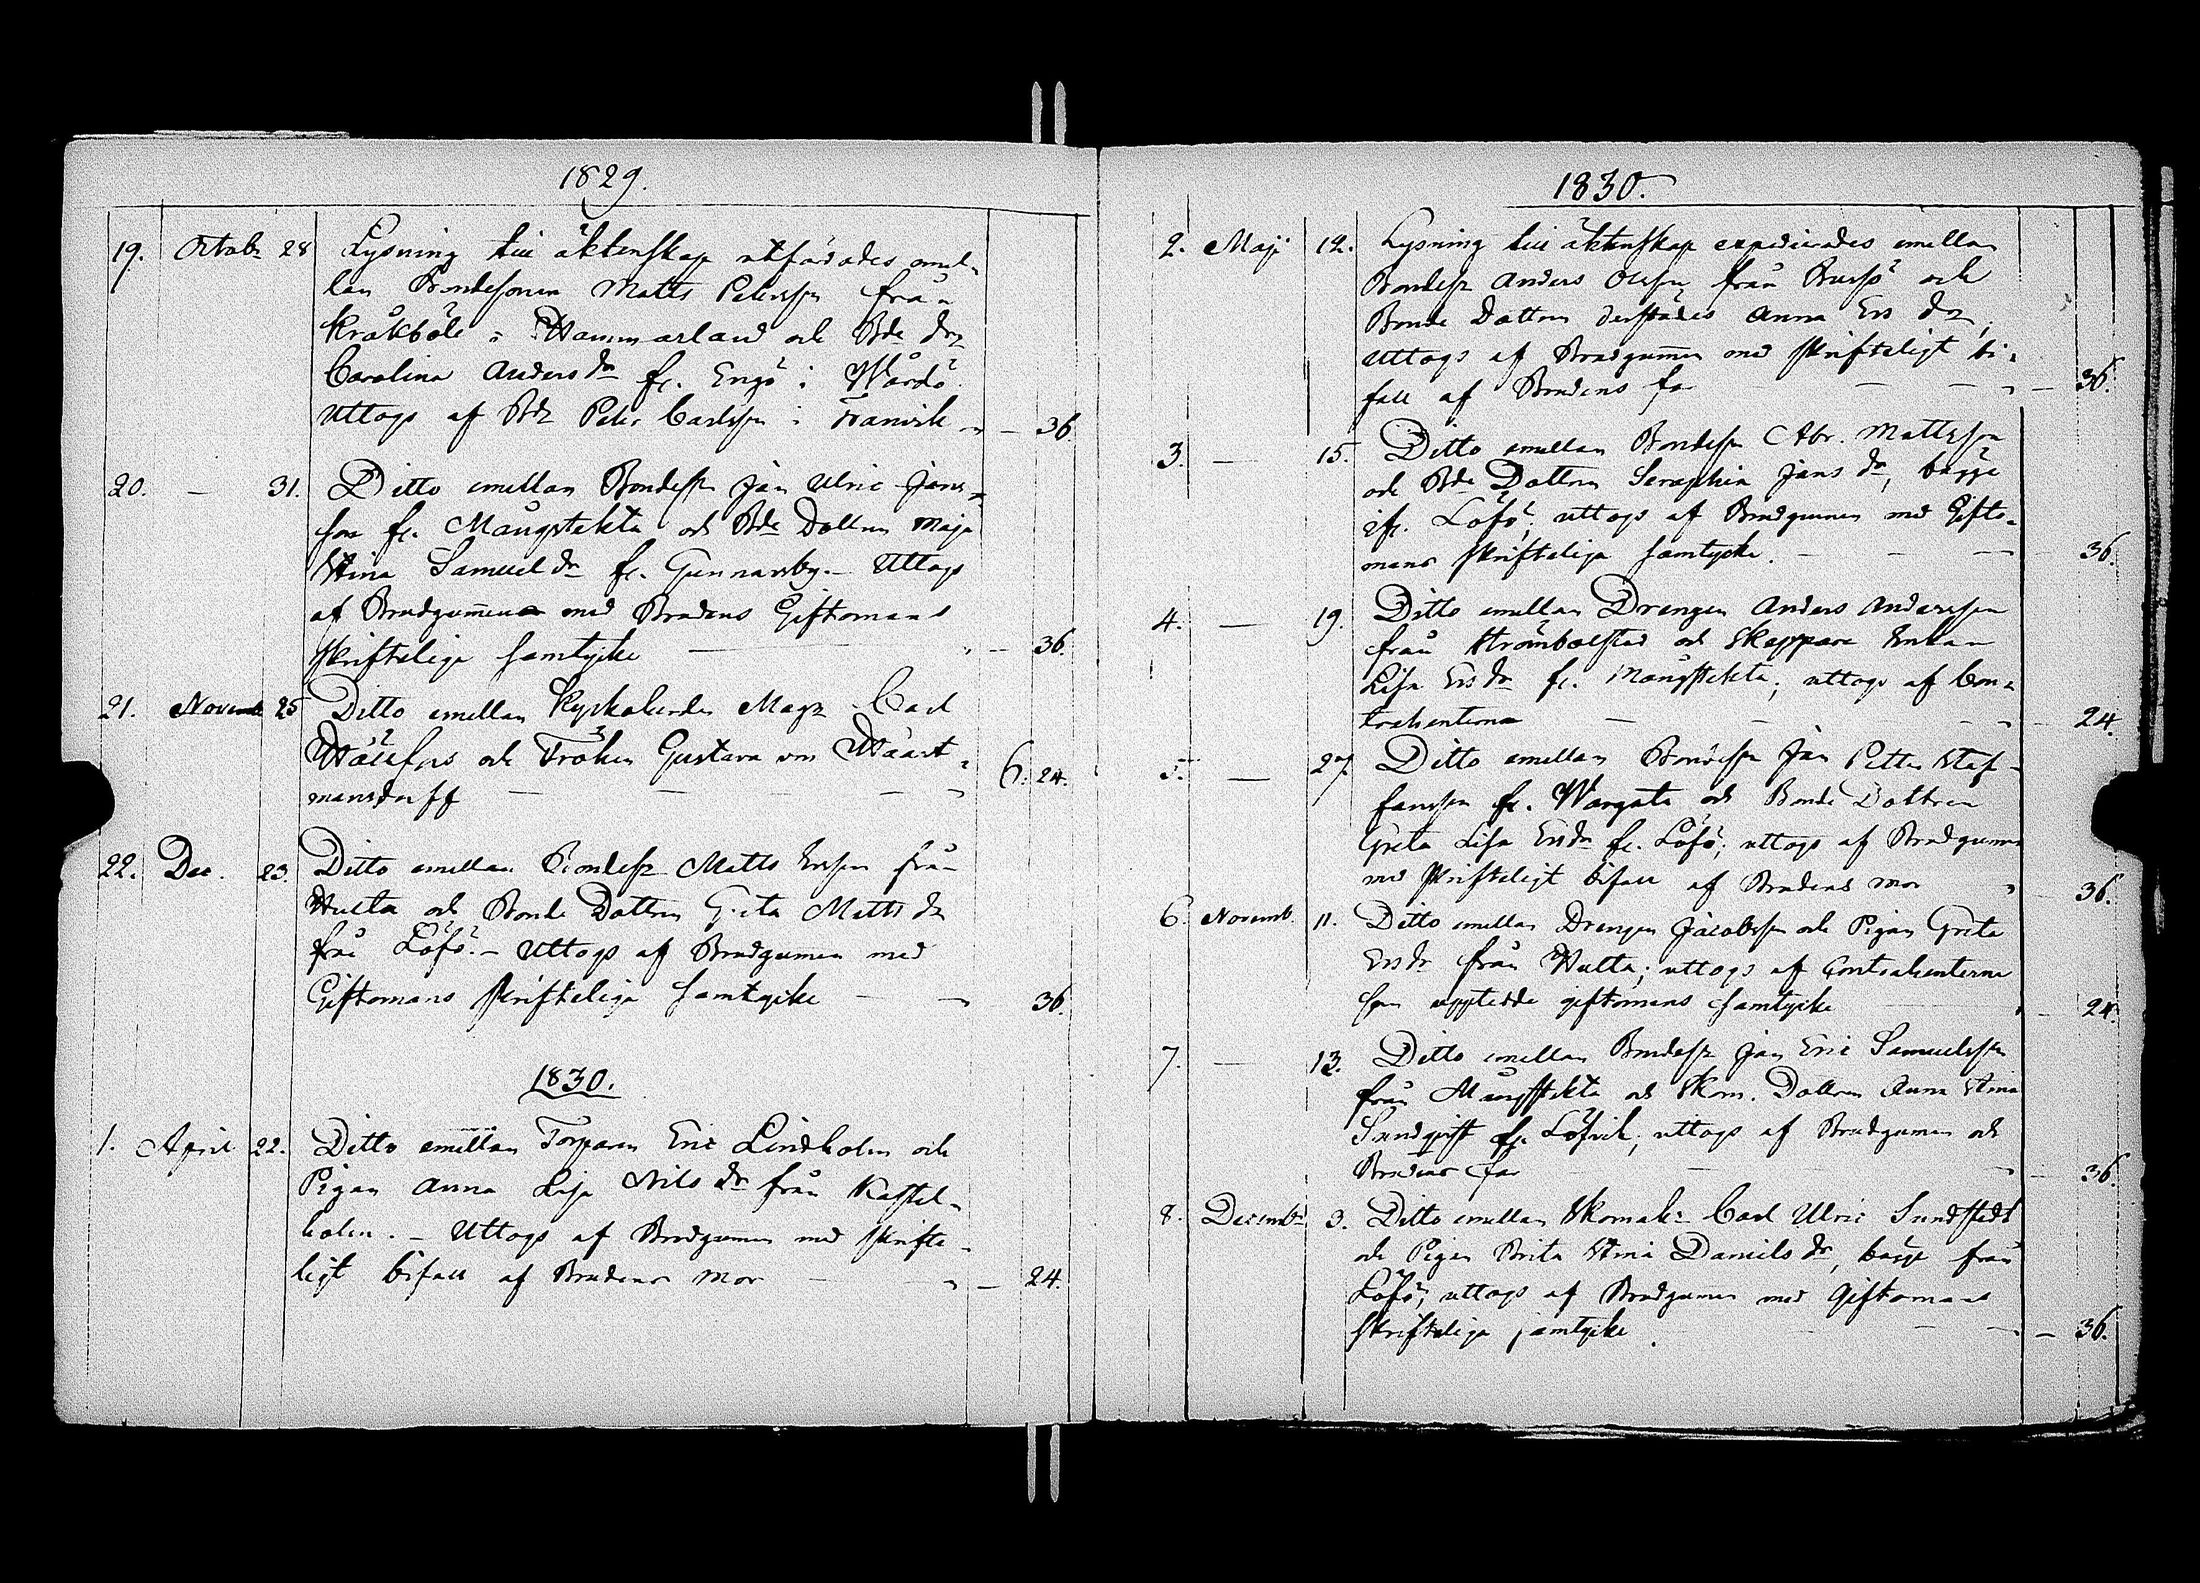 1829.
19. Octobr 28 Lysning till äktenskap utfärdades emel-
lan Bondesonen Matts Petersson från
Kråkböle i Hammarland och Bde dr
Carolina Anders dr fr. Engö i Wårdö
uttogs af Bdr Petr Carlsson i Tranvik - 36
20. — 31. Ditto emellan Bondess. Jan Ulric Jans-
son fr. Mångstekta och Bde Dottren Maja
Stina Samuel dr fr. Gunnarsby. — Uttogs
af Brudgummen med Brudens Giftomans
skrifteliga samtycke — 36.
21. Novemb 25 Ditto emellan Kyrkoherden Magr Carl
och Fröken Gustava von Haart-
mansdorff — 6. 24.
22. Dec. 23. Ditto emellan Bondess. Matts Ersson från
Hulta och Bonde Dottren Greta Matts dr
från Löfö. — Uttogs af Brudgumen med
Giftomans skrifteliga samtycke — 36.
1830.
1. April 22. Ditto emellan Torparen Eric Lindholm och
Pigan Anna Lisa Nils dr från Kastel-
holm. — Uttogs af Brudgumen med skrifte-
ligt bifall af Brudens mor — 24.
1830.
2. Maji 12. Lysning till äktenskap expedierades emellan
Bondess. Anders Olsson från Bussö och
Bonde Dottren derstädes Anna Ers dr,
uttogs af Brudgummen med skrifteligt bi-
fall af Brudens far — 36.
3. — 15. Ditto emellan Bondess. Abr. Mattsson
och Bde Dottren Seraphia Jans dr, bägge
ifr. Löfö; uttogs af Brudgummen med Gifto-
mans skrifteliga samtycke. — 36.
4. — 19. Ditto emellan Drengen Anders Andersson
från Strömbolstad och Skeppare Enkan
Lisa Ers dr fr. Mångstekta; uttogs af Con-
trahenterna — 24.
5. — 27. Ditto emellan Bondess. Jan Petter Staf-
fansson fr. Wargata och Bonde Dottren
Greta Lisa Ersdr fr. Löfö; uttogs af Brudgummen
med skrifteligt bifall af Brudens mor — 36.
6. Novemb. 11. Ditto emellan Drengen Jacobsson och Pigan Greta
Ersdr från Hulta; uttogs af Contrahenterna
som uppteddde giftomans samtycke — 24.
7. — 13. Ditto emellan Bondess. Jan Eric Samuelsson
från Mångstekta och Skom. Dottren Anna Stina
Sundqvist fr. Löfvik; uttogs af Brudgumen och
Brudens far — 36.
8. Decembr 3. Ditto emellan Skomakr Carl Ulric Sundstedt
och Pigan Brita Stina Daniels dr, bägge från
Löfö; uttogs af Brudgumen med Giftomans
skrifteliga samtycke. — 36.